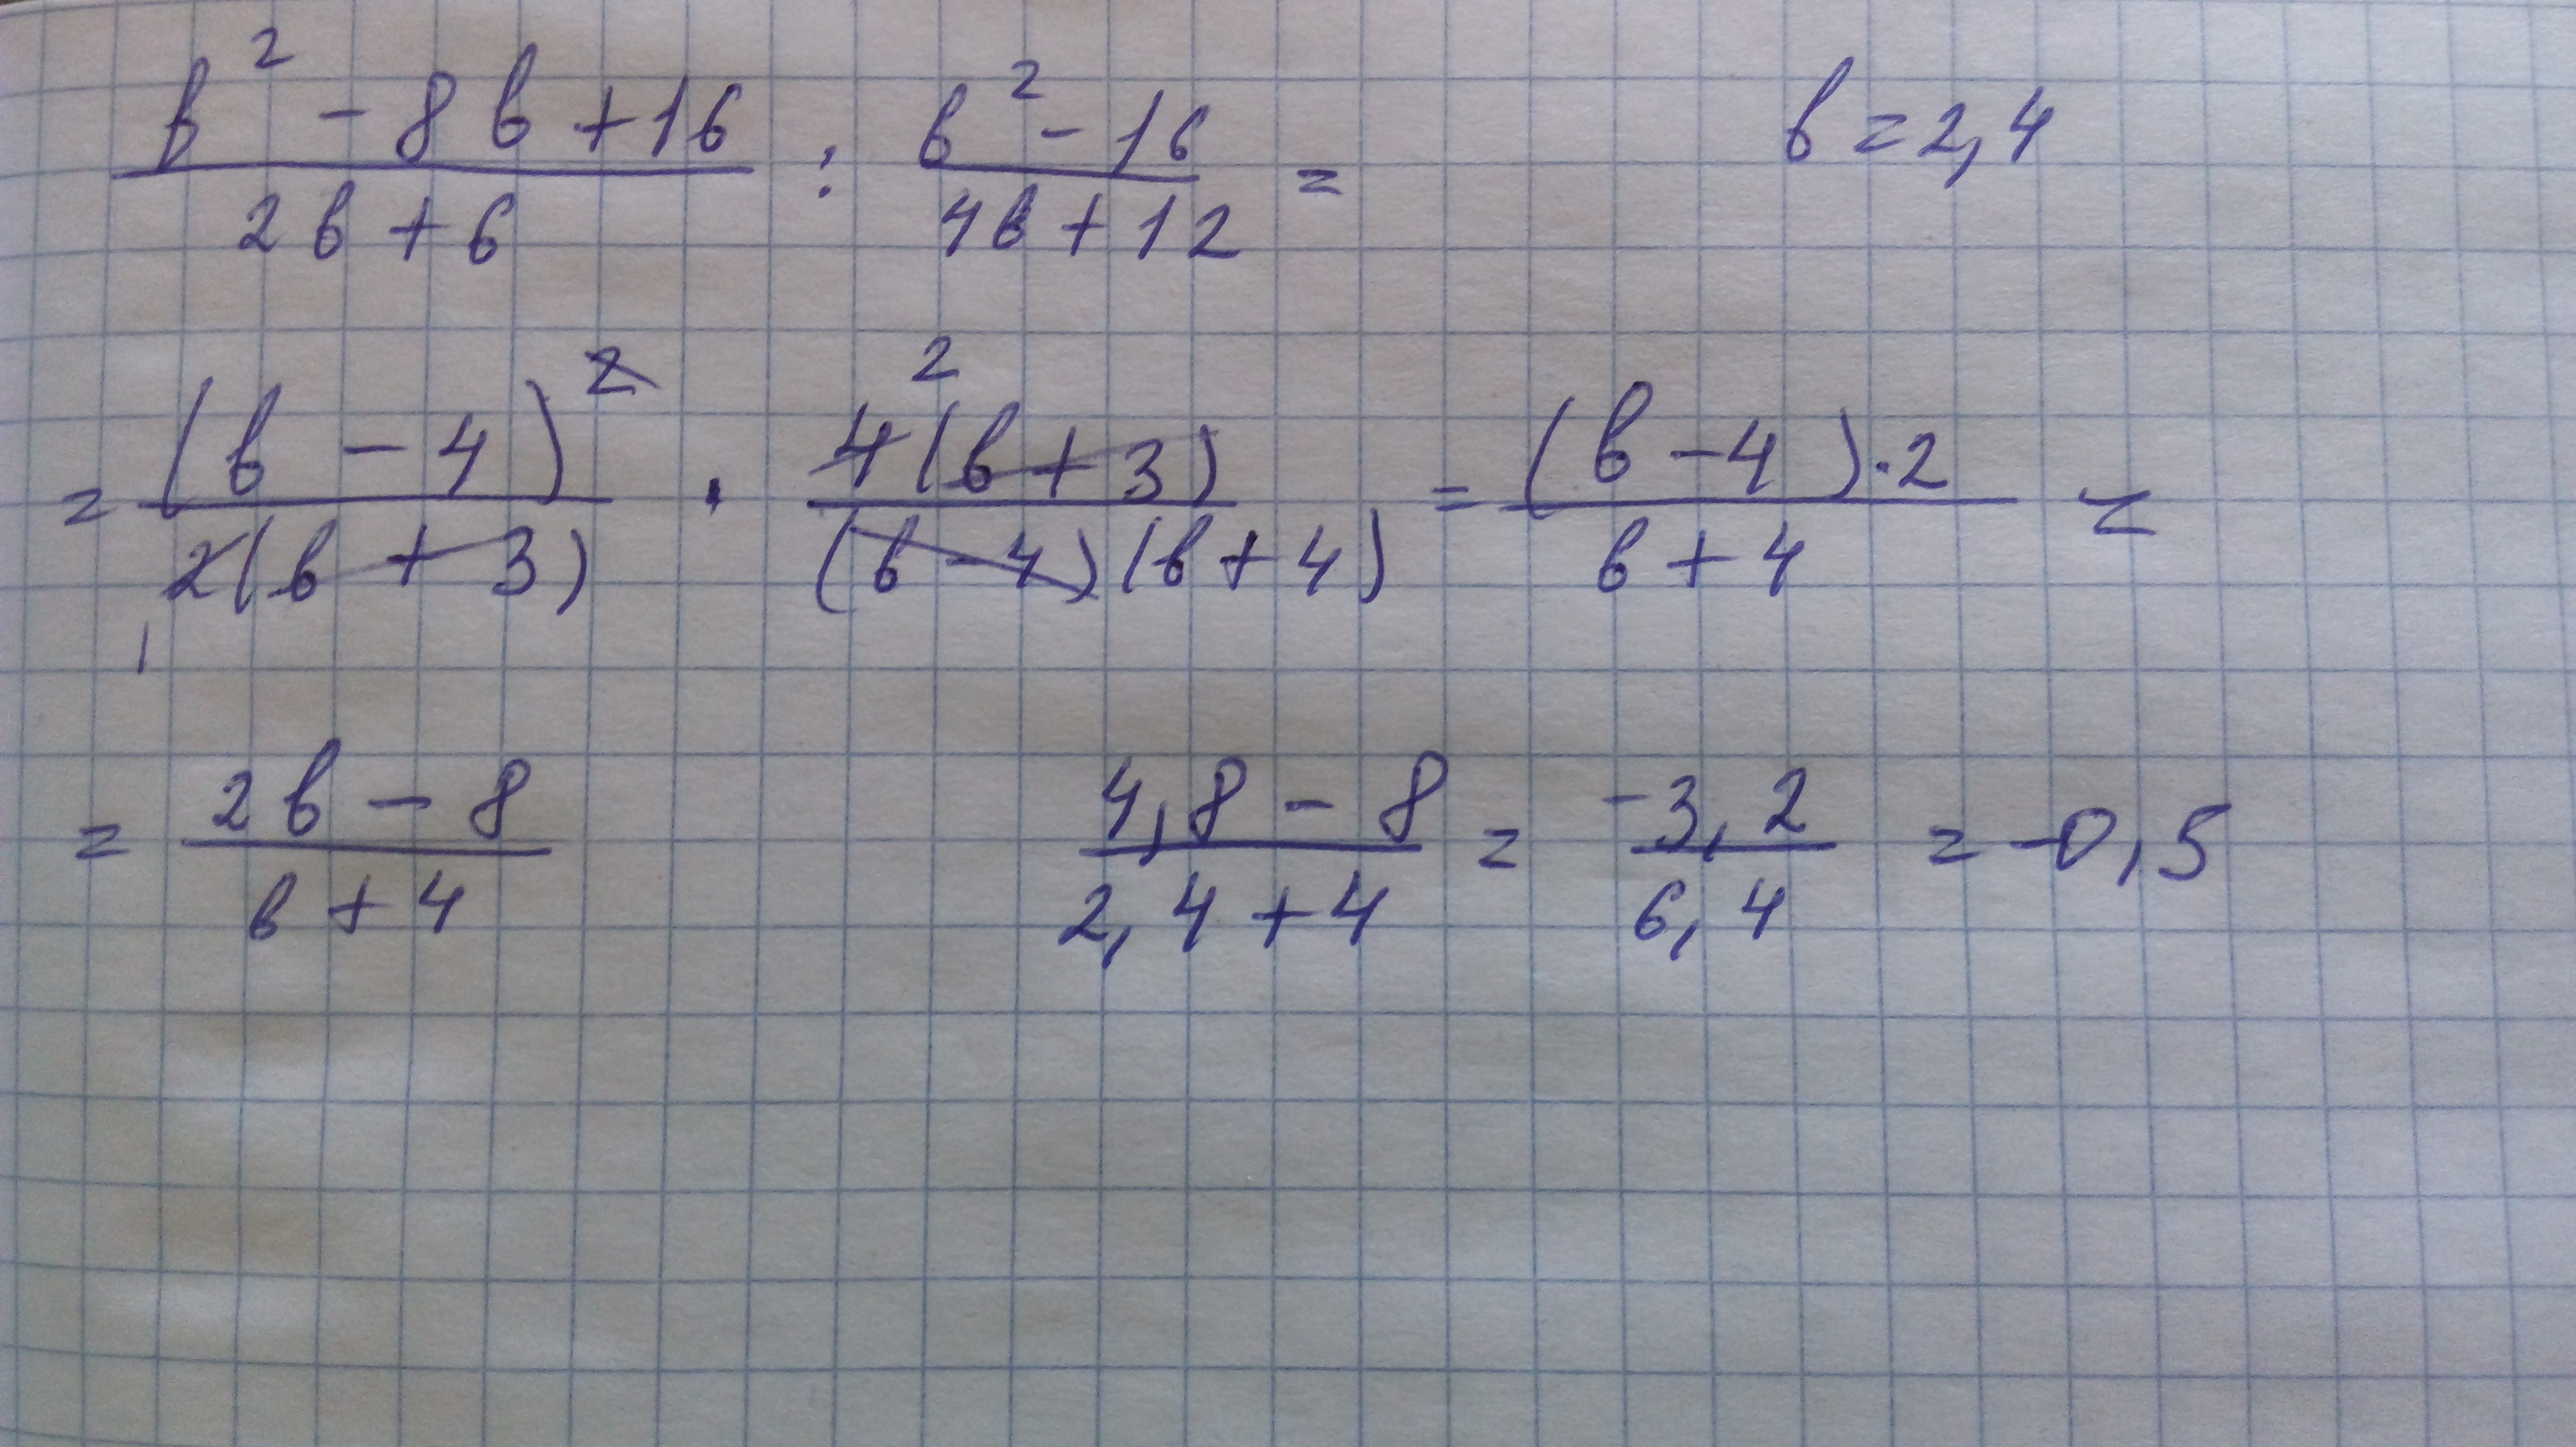 (b² - 8b + 16)/(2b + 6) : (b² - 16)/(4b + 12) = b = 2,4
= (b - 4)²/(2(b + 3)) · 4(b + 3)/((b - 4)(b + 4)) = (b - 4)·2/(b + 4) = 2 1
= (2b - 8)/(b + 4) (4,8 - 8)/(2,4 + 4) = -3,2/6,4 = -0,5